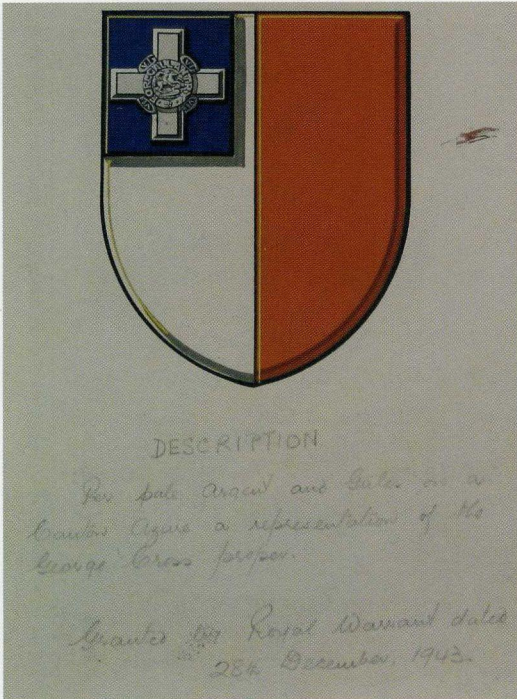 DESCRIPTION
Per pale Argent and Gules on a
Canton Azure a representation of the
George Cross proper.
Granted by Royal Warrant dated
28th December, 1943.